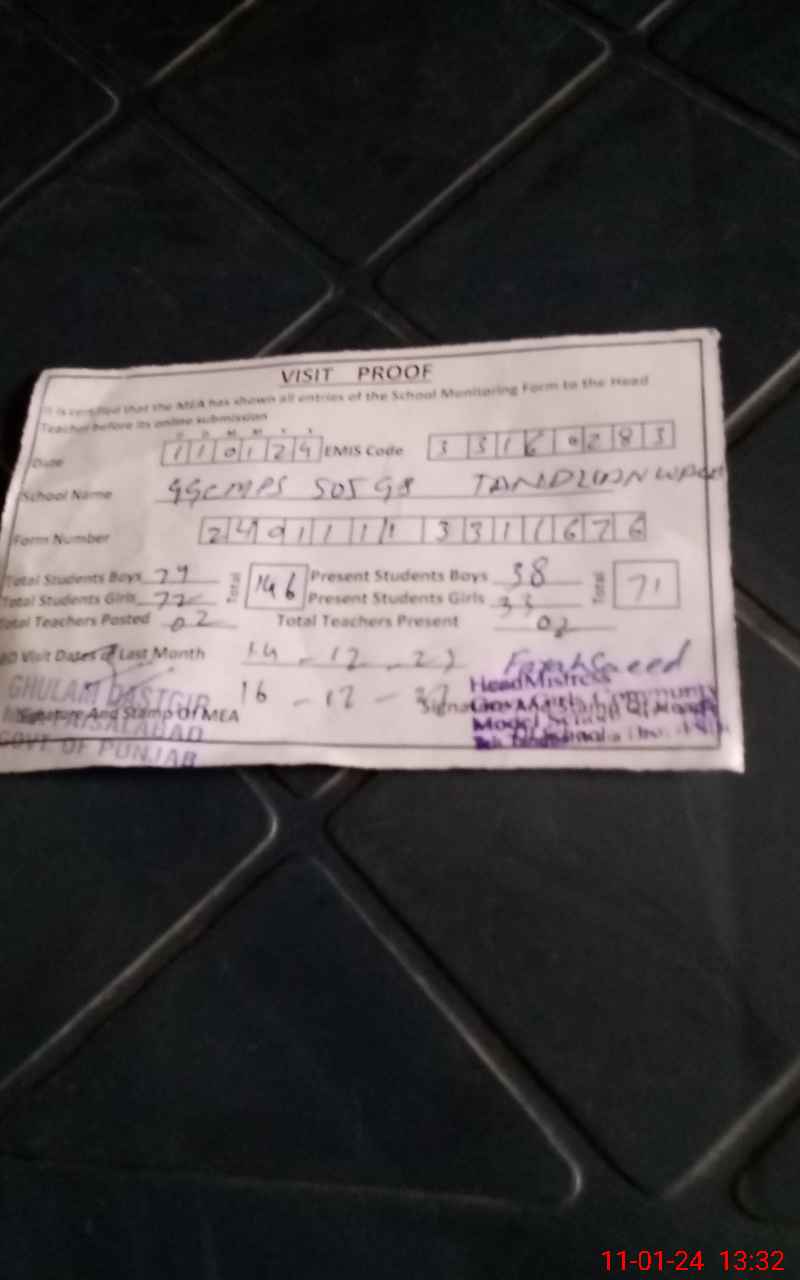 VISIT PROOF
It is certified that the MEA has shown all entries of the School Monitoring Form to the Head
Teacher before its online submission
Date 110124 EMIS Code 33160283
School Name GGCMPS 505 GB TANDLIANWALA
Form Number 24011111 3311676
Total Students Boys Total 146 Present Students Boys 38 Total 71
Total Students Girls 72 Present Students Girls 33
Total Teachers Posted 02 Total Teachers Present 02
Visit Dates of Last Month 14-12-23
16-12-23
GHULAM DASTGIR
Signature And Stamp Of MEA
FAISALABAD
GOVT OF PUNJAB
Farah Saeed
HeadMistress
Community
Model School
11-01-24 13:32